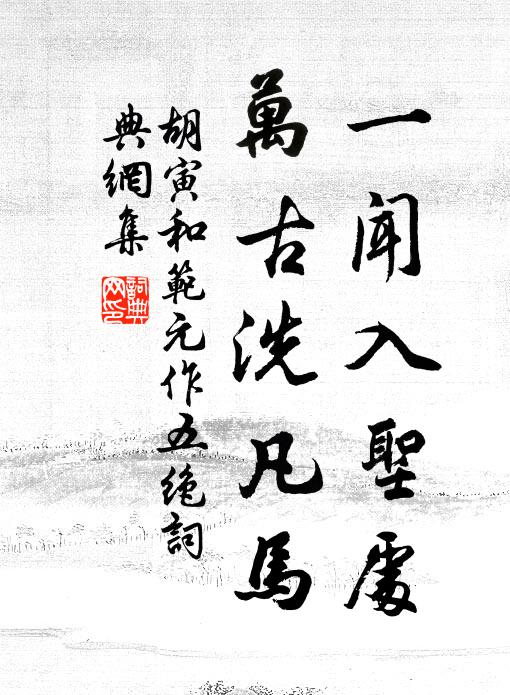 一聞入聖處
萬古洗凡馬
胡寅和範元作五绝詞
典網集
詞典網印